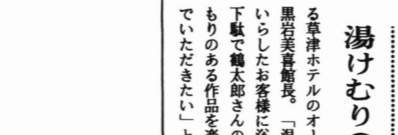 湯けむりの
る草津ホテルのオー
黒岩美喜館長。「温
いらしたお客様に浴
下駄で鶴太郎さんの
もりのある作品を楽
でいただきたい」と